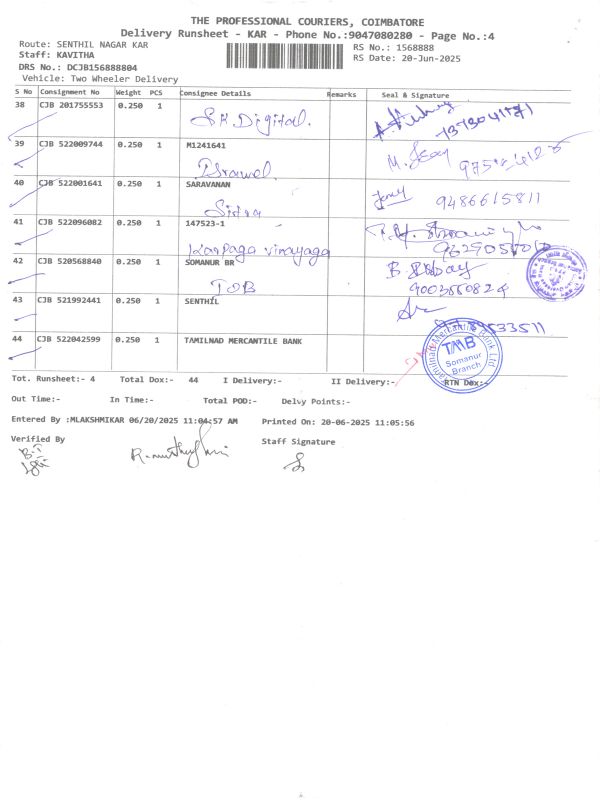 THE PROFESSIONAL COURIERS, COIMBATORE
Delivery Runsheet - KAR - Phone No.:9047080280 - Page No.:4
Route: SENTHIL NAGAR KAR RS No.: 1568888
Staff: KAVITHA RS Date: 20-Jun-2025
DRS No.: DCJB156888804
Vehicle: Two Wheeler Delivery
S No Consignment No Weight PCS Consignee Details Remarks Seal & Signature
38 CJB 201755553 0.250 1
SK Digital.
39 CJB 522009744 0.250 1 M1241641
40 CJB 522001641 0.250 1 SARAVANAN 9486615811
41 CJB 522096082 0.250 1 147523-1
Karpaga Vinayaga
42 CJB 520568840 0.250 1 SOMANUR BR
IOB 9003550824
43 CJB 521992441 0.250 1 SENTHIL
44 CJB 522042599 0.250 1 TAMILNAD MERCANTILE BANK
Tamilnad Mercantile Bank Ltd
TMB
Somanur
Branch
Tot. Runsheet:- 4 Total Dox:- 44 I Delivery:- II Delivery:- RTN Dox:-
Out Time:- In Time:- Total POD:- Delvy Points:-
Entered By :MLAKSHMIKAR 06/20/2025 11:04:57 AM Printed On: 20-06-2025 11:05:56
Verified By Staff Signature